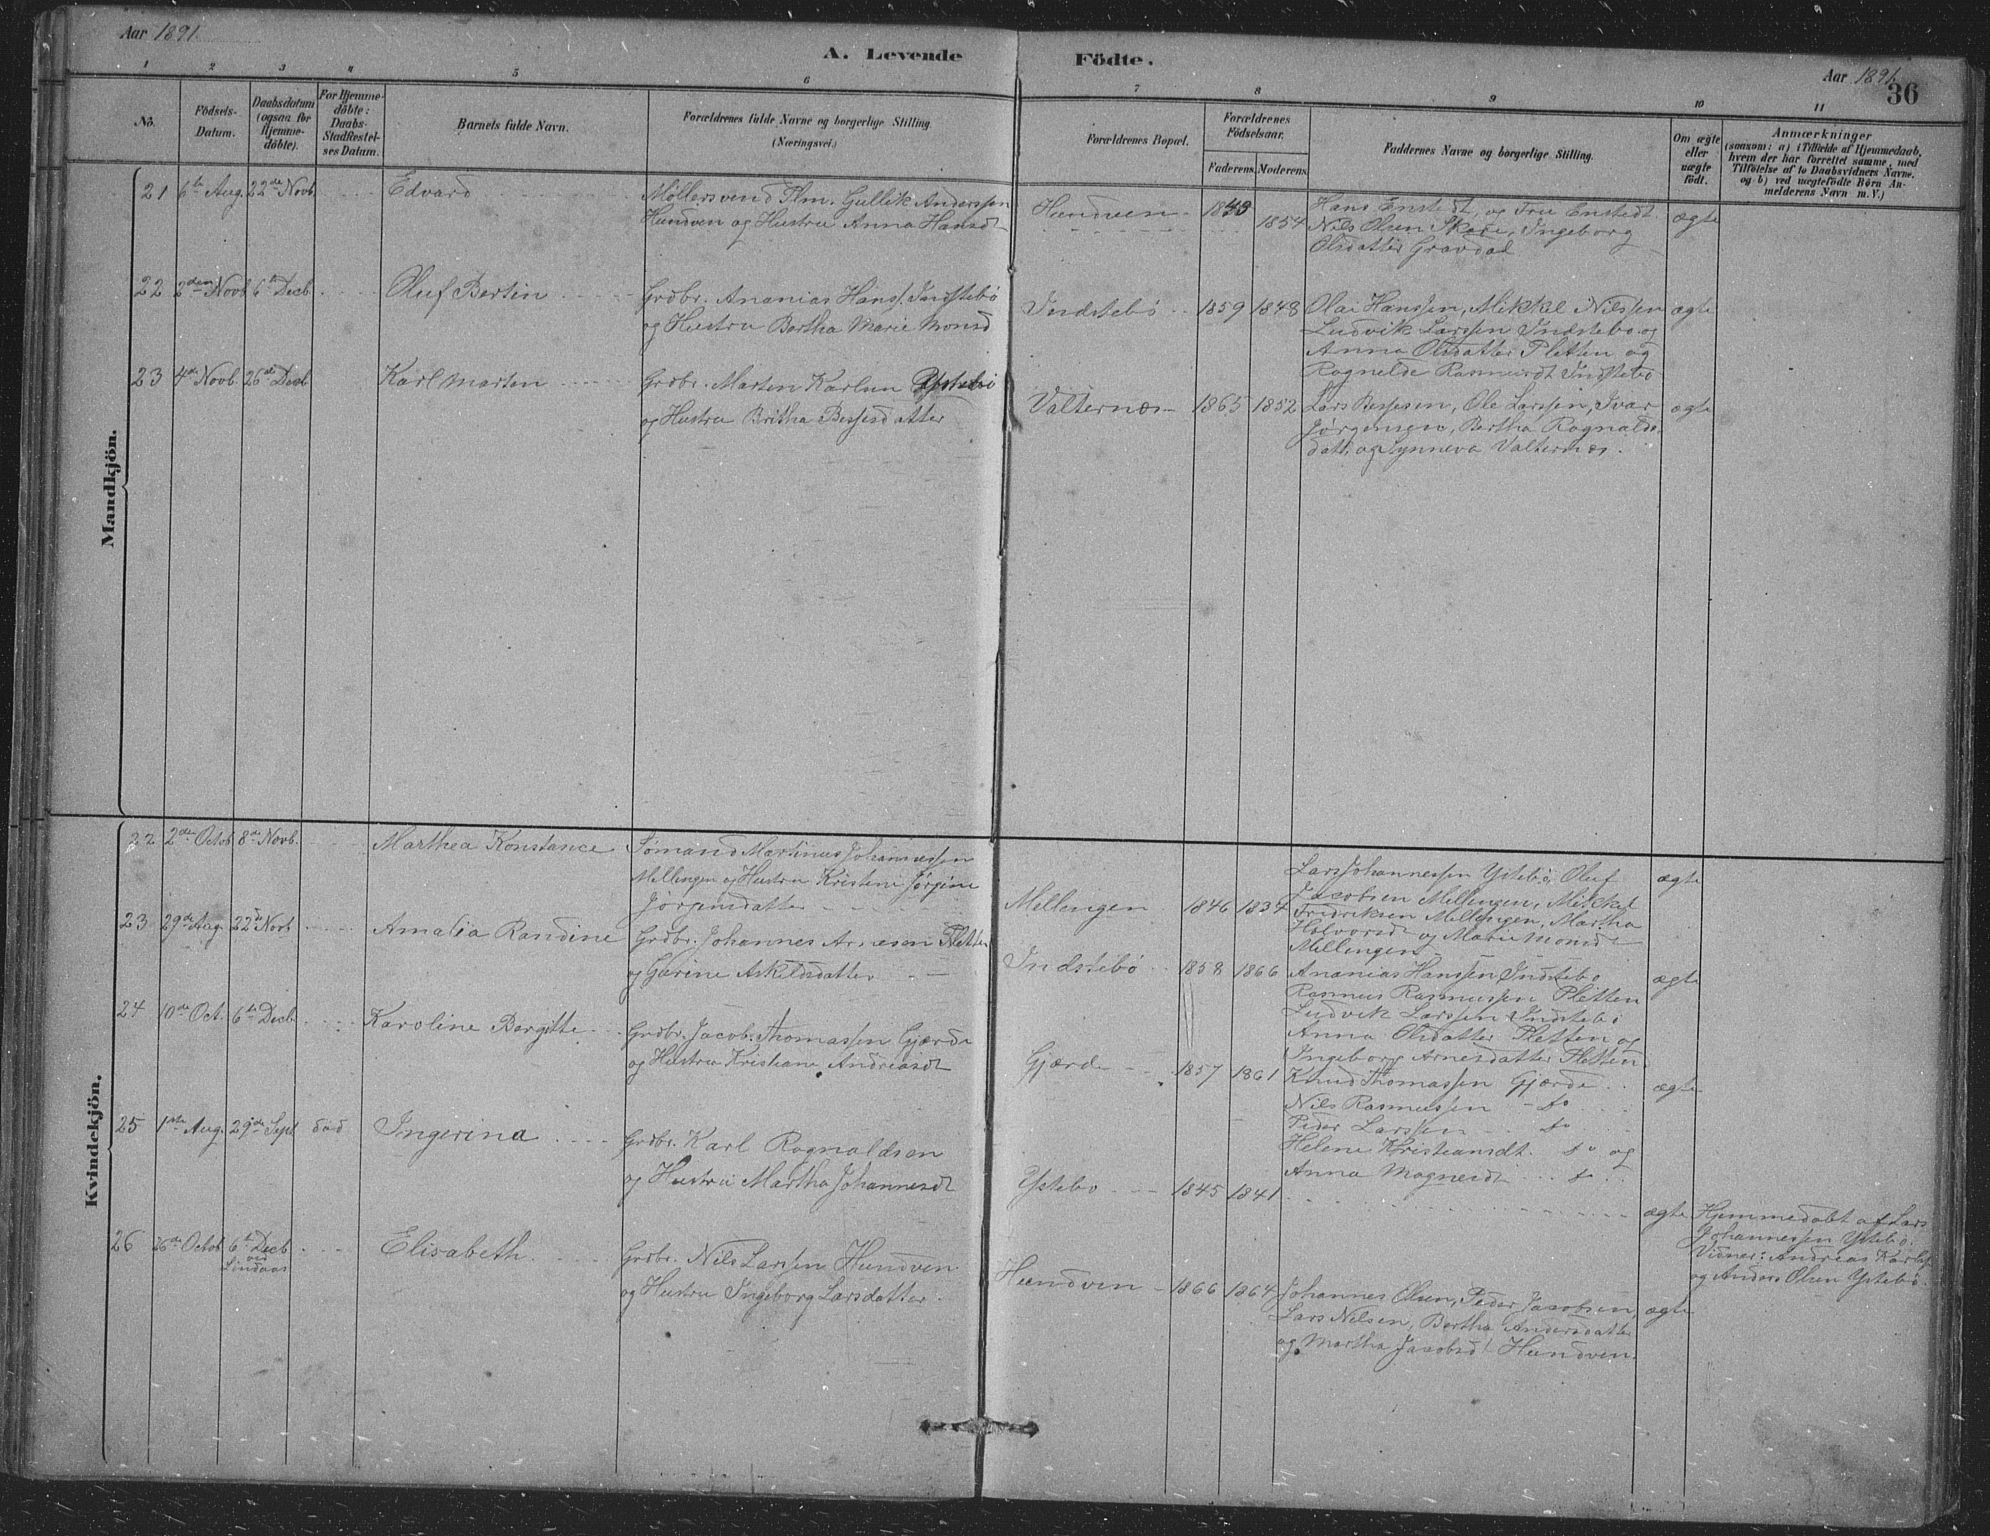 Aar 1891.
A. Levende Födte.
Aar 1891.
36
1 2 3 4 5 6 7 8 9 10 11
No.
Födsels-
Datum.
Daabsdatum
(ogsaa for
Hjemme-
döbte).
For Hjemme-
döbte:
Daabs-
Stadfæstel-
ses Datum.
Barnets fulde Navn.
Forældrenes fulde Navne og borgerlige Stilling
(Næringsvei.)
Forældrenes Bopæl.
Forældrenes
Födselsaar.
Faderens. Moderens.
Faddernes Navne og borgerlige Stilling.
Om ægte
eller
uægte
födt.
Anmærkninger
(saasom: a) i Tilfælde af Hjemmedaab,
hvem der har forrettet samme, med
Tilföielse af to Daabsvidners Navne.
og b) ved uægtefödte Börn An-
melderens Navn m. V.)
Mandkjön.
21 6te Aug. 22de Novb. Edvard
Møllersvend Plm. Gullik Anderssen
Hundven og Hustru Anna Hansdt
Hundven 1854
Hans Enstedt, og Fru Enstedt
Nils Olsen Skare, Ingeborg
Olsdatter Gravdal
ægte
22 2den Novb 6te Decb Oluf Bertin
Grdbr. Ananias Hanss. Indstebø
og Hustru Bertha Marie Monsd
Indstebö 1859 1848
Olai Hanssen, Mikkel Nilssen
Ludvik Larssen Indstebø og
Anna Olsdatter Pletten og
Ragnelde Rasmusdt Indstebø
ægte
23 4de Novb. 26de Decb Karl Marten
Grdbr. Marten Karlsen
og Hustru Britha Bessesdatter
Valternæs 1865 1852
Lars Bessesen, Ole Larssen, Ivar
Jørgensen, Bertha Ragnalds-
datt. og Synneva Valternæs.
ægte
Kvindekjön.
22 2den Octob 8de Novb. Marthea Konstance
Sømand Martinus Johannessen
Mellingen og Hustru Kristeni Jørgine
Jørginsdatter
Mellingen 1846 1834
Lars Johannessen Ystebø, Oluf
Jacobsen Mellingen, Mikkel
Fredriksen Mellingen, Martha
Halvorsd og Marie Monsd
Mellingen
ægte
23 29de Aug. 22de Novb Amalia Randine
Grdbr. Johannes Arnesen Pletten
og Gurine Askeldsdatter
Indstebø 1858 1866
Ananias Hanssen Indstebø
Rasmus Rasmussen Pletten
Ludvik Larssen Indstebø
Anna Olsdatter Pletten og
Ingeborg Arnesdatter Pletten
ægte
24 10de Oct. 6te Decb Karoline Borgitte
Grdbr. Jacob Thomassen Gjærde
og Hustru Kristiane Andreasdt
Gjærde 1857 1861
Knud Thomassen Gjærde
Nils Rasmussen do
Peder Larssen do
Helene Kristiansdt. do og
Anna Magnesdt do
ægte
25 1ste Aug. 29de Sept død Ingerina
Grdbr. Karl Ragnaldsen
og Hustru Martha Johannesdt
Ystebø 1845 1841
ægte
Hjemmedøbt af Lars
Johannessen Ystebø.
Vidner: Andreas Karlss.
og Anders Olsen Ystebø.
26 26de Octob 6te Decb
ved
Lindaas
Elisabeth
Grdbr. Nils Larssen Hundven
og Hustru Ingeborg Larsdatter.
Hundven 1866 1864
Johannes Olsen, Peder Jacobsen,
Lars Nilsen, Bertha Andersdatter
og Martha Jacobsdt Hundven.
ægte